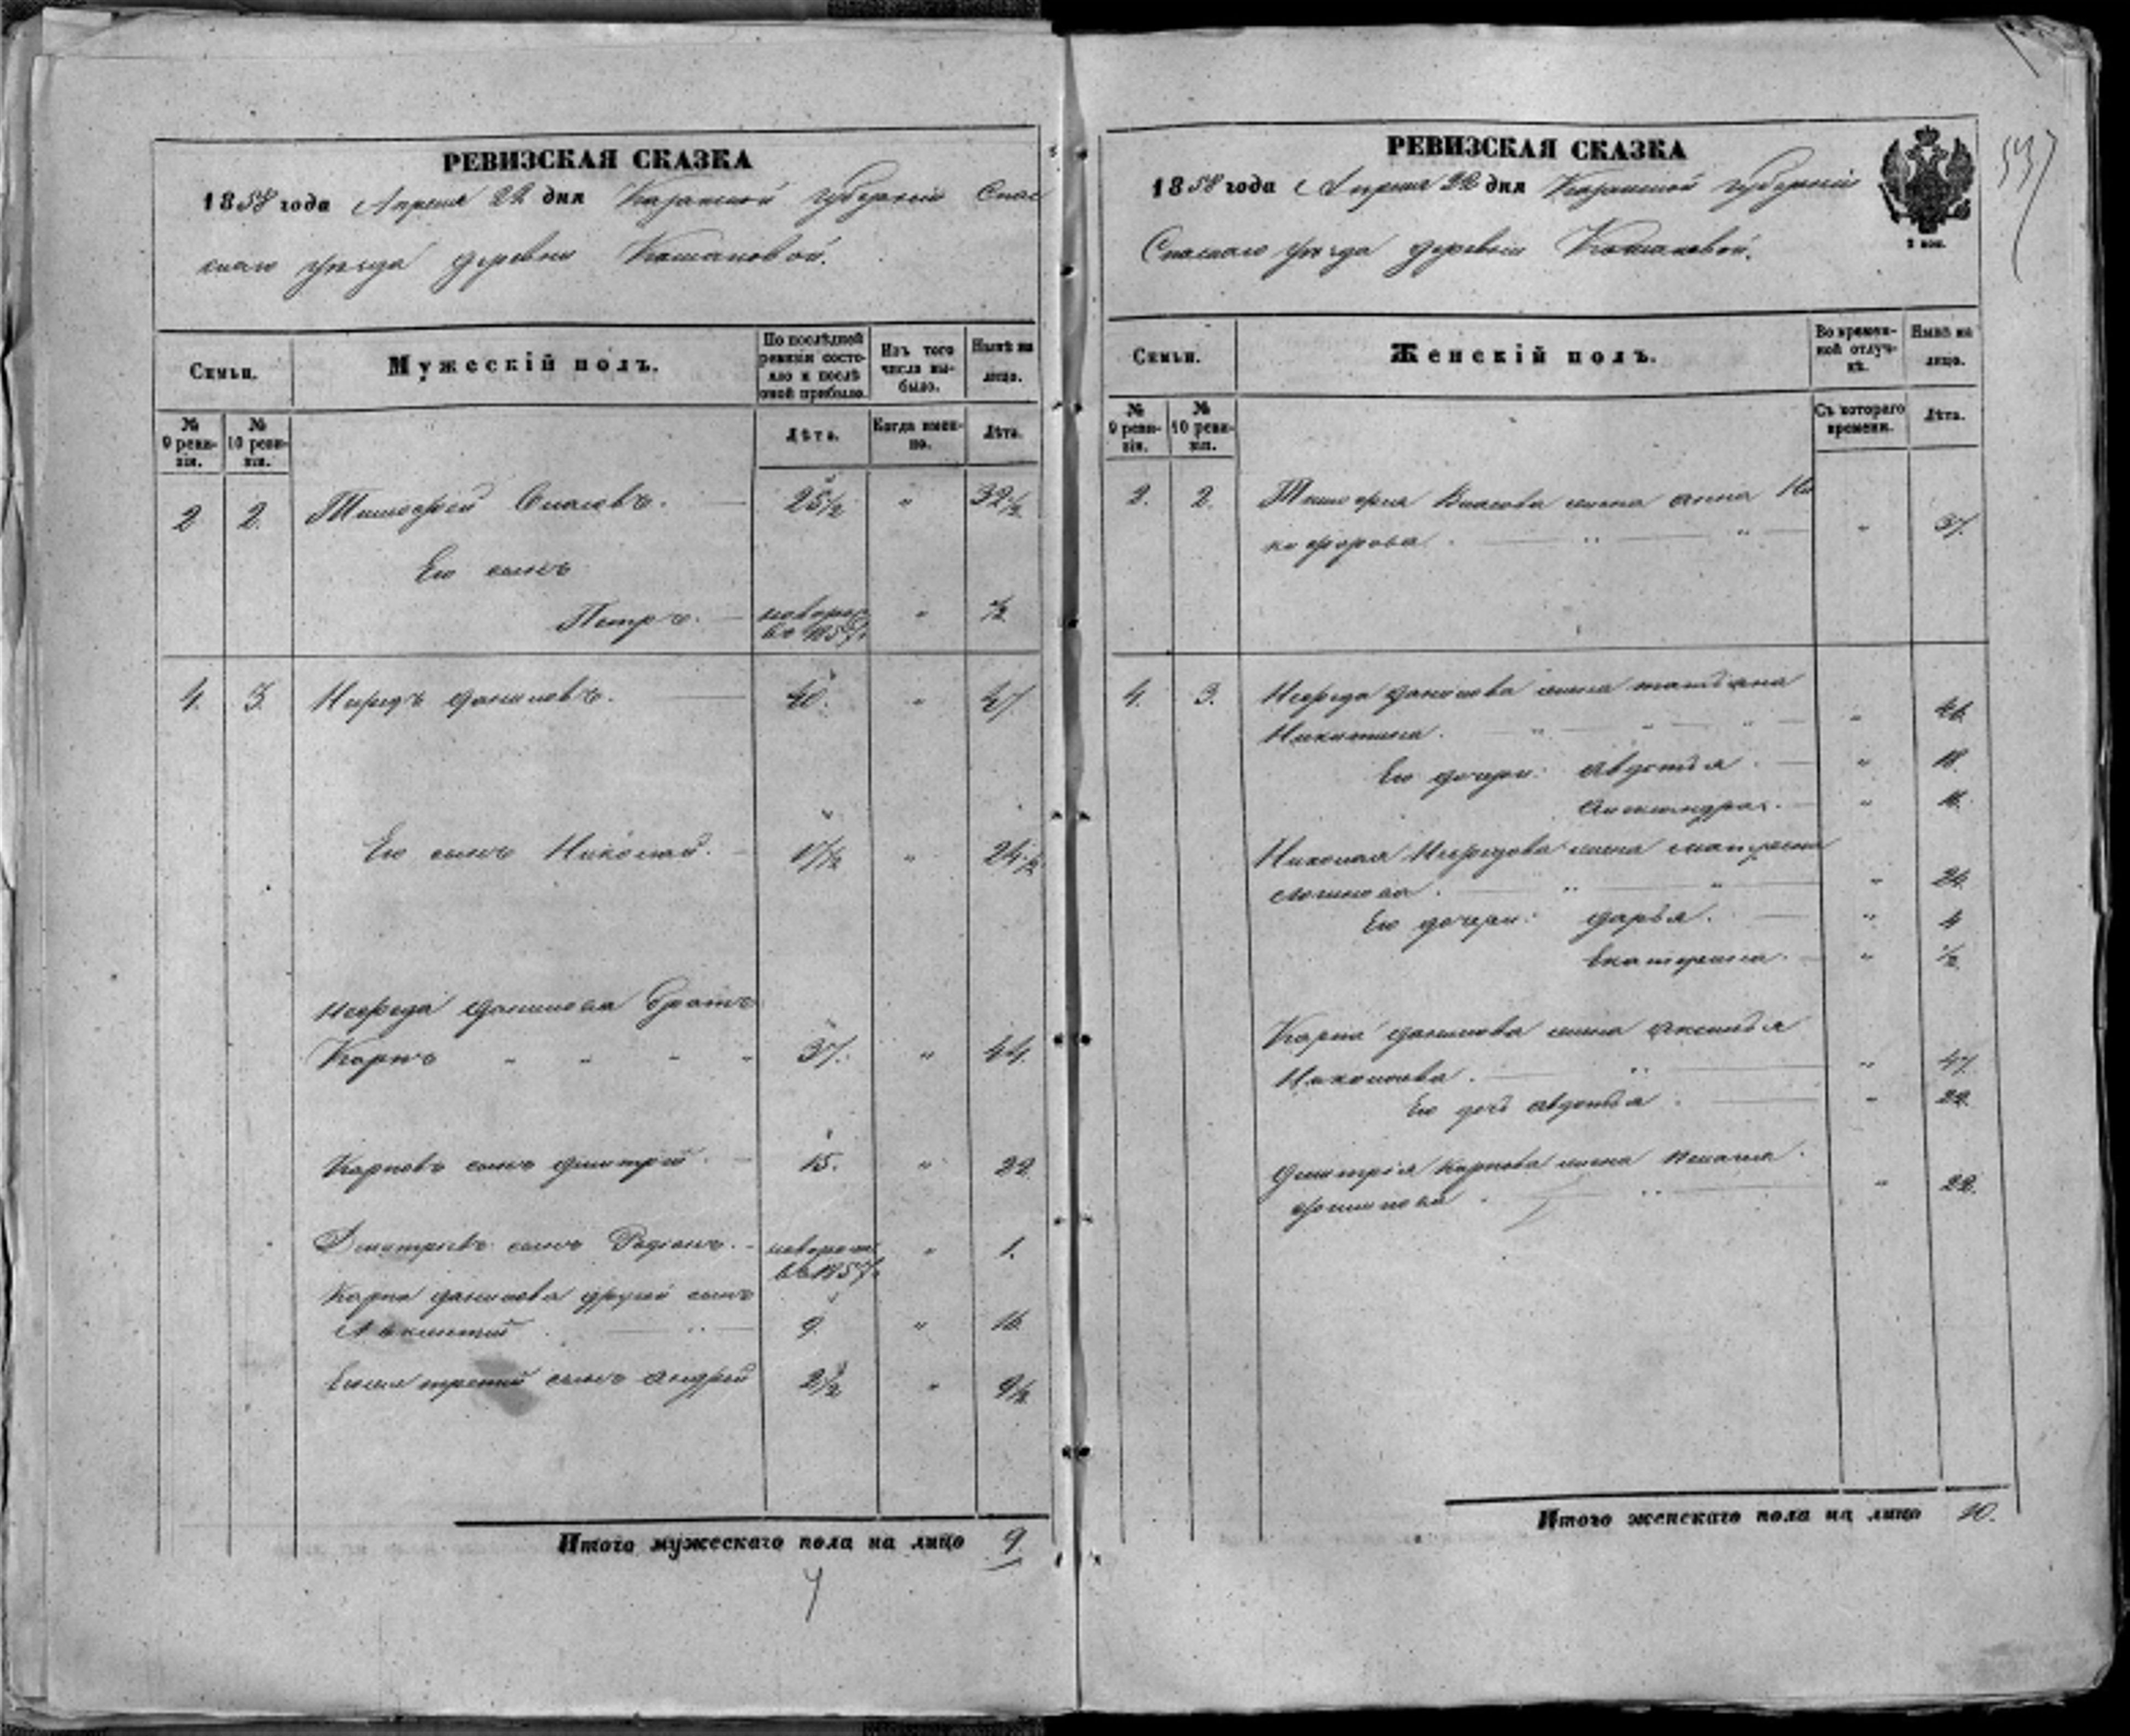 РЕВИЗСКАЯ СКАЗКА
1858 года Апреля 22 дня Казанской губернiи Спас
скаго уѣзда деревни Кошаковой.
Семьи.
Мужескiй полъ.
По послѣдней ревизiи состояло и послѣ оной прибыло.
Изъ того числа выбыло.
Нынѣ на лицо.
№ 9 ревизiи.
№ 10 ревизiи.
Лѣта.
Когда именно.
Лѣта.
2 2. Тимофей 25½ " 32½
Его сынъ
Петръ. новорож. " ½
во 1857.
4. 3. Нефедъ Даниловъ. 40. " 47.
Его сынъ Николай. 17½ " 24½
Нефеда Данилова братъ
Карпъ " " " " 37. " 44.
Карповъ сынъ Дмитрiй. 15. " 22.
Дмитрiевъ сынъ Родiонъ. новорож. " 1.
въ 1857.
Карпа Данилова другой сынъ
9. " 16.
третiй сынъ Андрей 2½ " 9½
Итого мужескаго пола на лицо 9.
РЕВИЗСКАЯ СКАЗКА
1858 года Апреля 22 дня Казанской губернiи
Спаскаго уѣзда деревни Кошаковой.
2 коп.
537
Семьи.
Женскiй полъ.
Во временной отлучкѣ.
Нынѣ на лицо.
№ 9 ревизiи.
№ 10 ревизiи.
Съ котораго времени.
Лѣта.
2. 2. Тимофея жена Анна Ни
кифорова. " 37.
4. 3. Нефеда Данилова жена Татьяна
Никитина. " 46.
Его дочери: Авдотья. " 18.
Александра. " 16.
Николая Нефедова жена Матрена
Логинова. " 24.
Его дочери: Дарья. " 4
Екатерина. " ½
Карпа Данилова жена Аксинья
Николаева. " 47.
Его дочь Авдотья. " 22.
Дмитрiя Карпова жена Пелагея
Филипова. " 22.
Итого женскаго пола на лицо 10.